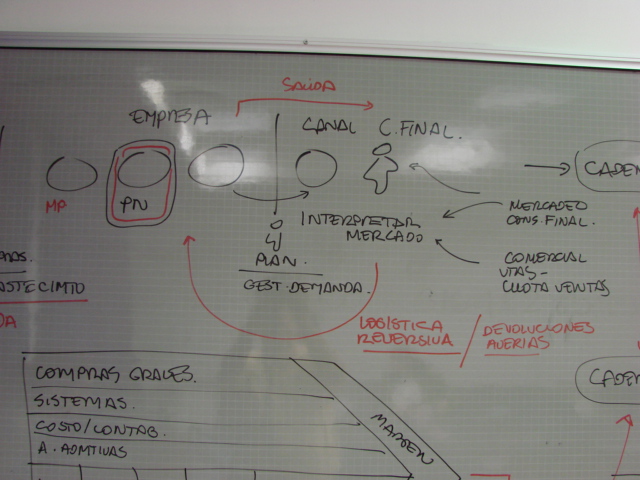 SALIDA
EMPRESA
CANAL C.FINAL.
MP
PN
INTERPRETAR
MERCADO
MERCADEO
CONS.FINAL.
PLAN.
GEST.DEMANDA.
COMERCIAL
VTAS-
CUOTA VENTAS
CADEN
ASTECIMTO
DA
LOGÍSTICA
REVERSIVA / DEVOLUCIONES
AVERIAS
COMPRAS GRALES.
SISTEMAS.
COSTO/CONTAB.
A. ADMTIVAS
MARGEN
CADEN